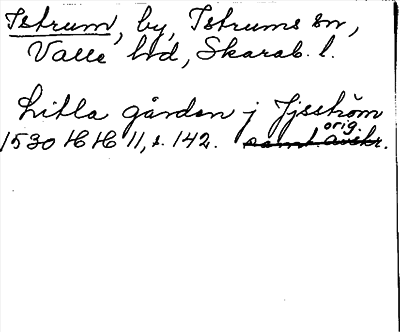 Istrum, by, Istrums sn,
Valle hd, Skarab. l.
Litla gården j Jjsström
orig.
1530 HH 11, s. 142. samt avskr.